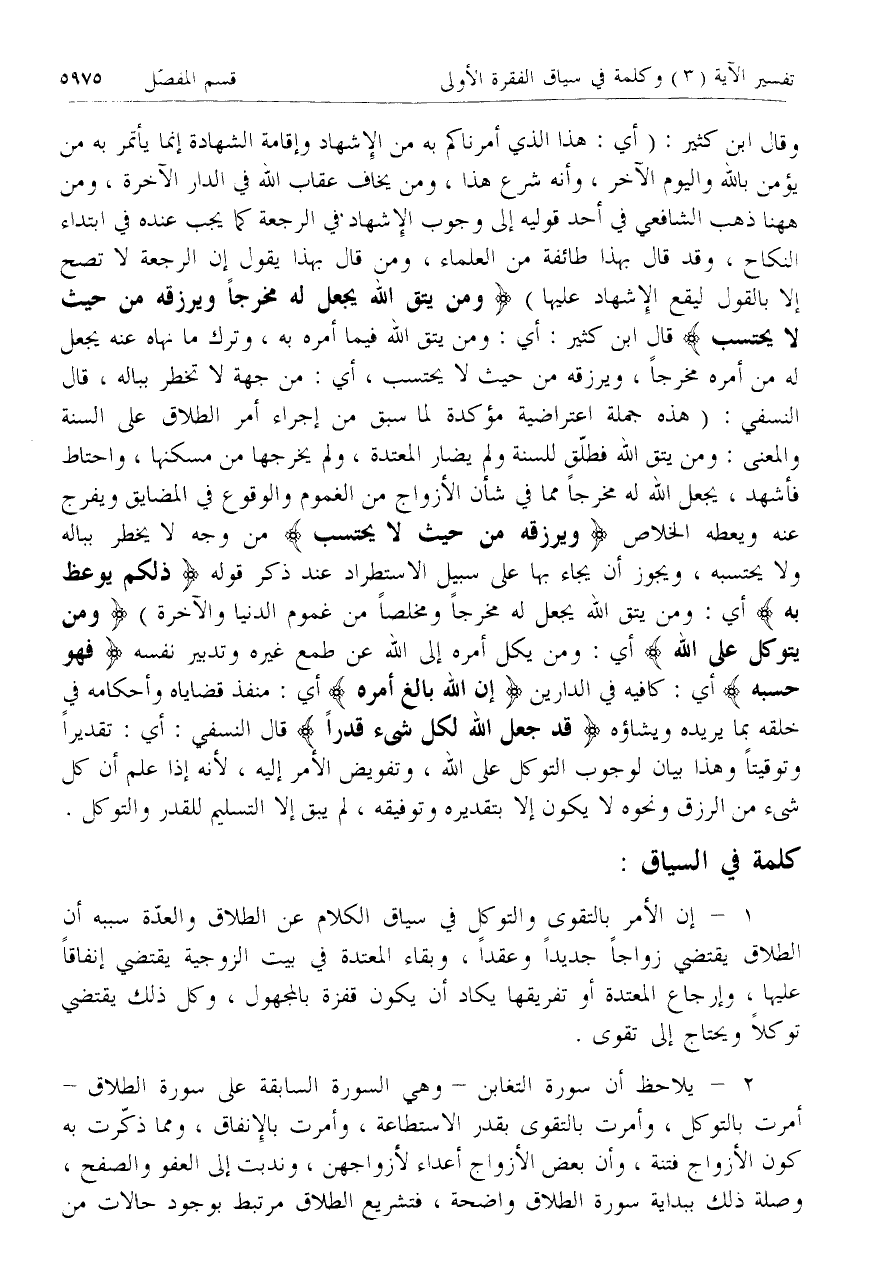 تفسير الآية ( ٣ ) وكلمة في سياق الفقرة الأولى قسم المفصّل ٥٩٧٥
وقال ابن كثير : ( أي : هذا الذي أمرناكم به من الإِشهاد وإقامة الشهادة إنما يأتمر به من
يؤمن بالله واليوم الآخر ، وأنه شرع هذا ، ومن يخاف عقاب الله في الدار الآخرة ، ومن
ههنا ذهب الشافعي في أحد قوليه إلى وجوب الإِشهاد في الرجعة كما يجب عنده في ابتداء
النكاح ، وقد قال بهذا طائفة من العلماء ، ومن قال بهذا يقول إن الرجعة لا تصح
إلا بالقول ليقع الإِشهاد عليها ) ﴿ ومن يتق الله يجعل له مخرجاً ويرزقه من حيث
لا يحتسب ﴾ قال ابن كثير : أي : ومن يتق الله فيما أمره به ، وترك ما نهاه عنه يجعل
له من أمره مخرجاً ، ويرزقه من حيث لا يحتسب ، أي : من جهة لا تخطر بباله ، قال
النسفي : ( هذه جملة اعتراضية مؤكدة لما سبق من إجراء أمر الطلاق على السنة
والمعنى : ومن يتق الله فطلّق للسنة ولم يضار المعتدة ، ولم يخرجها من مسكنها ، واحتاط
فأشهد ، يجعل الله له مخرجاً مما في شأن الأزواج من الغموم والوقوع في المضايق ويفرج
عنه ويعطه الخلاص ﴿ ويرزقه من حيث لا يحتسب ﴾ من وجه لا يخطر بباله
ولا يحتسبه ، ويجوز أن يجاء بها على سبيل الاستطراد عند ذكر قوله ﴿ ذلكم يوعظ
به ﴾ أي : ومن يتق الله يجعل له مخرجاً ومخلصاً من غموم الدنيا والآخرة ) ﴿ ومن
يتوكل على الله ﴾ أي : ومن يكل أمره إلى الله عن طمع غيره وتدبير نفسه ﴿ فهو
حسبه ﴾ أي : كافيه في الدارين ﴿ إن الله بالغ أمره ﴾ أي : منفذ قضاياه وأحكامه في
خلقه بما يريده ويشاؤه ﴿ قد جعل الله لكل شيء قدراً ﴾ قال النسفي : أي : تقديراً
وتوقيتاً وهذا بيان لوجوب التوكل على الله ، وتفويض الأمر إليه ، لأنه إذا علم أن كل
شيء من الرزق ونحوه لا يكون إلا بتقديره وتوفيقه ، لم يبق إلا التسليم للقدر والتوكل .
كلمة في السياق :
١ – إن الأمر بالتقوى والتوكل في سياق الكلام عن الطلاق والعدّة سببه أن
الطلاق يقتضي زواجاً جديداً وعقداً ، وبقاء المعتدة في بيت الزوجية يقتضي إنفاقاً
عليها ، وإرجاع المعتدة أو تفريقها يكاد أن يكون قفزة بالمجهول ، وكل ذلك يقتضي
توكلاً ويحتاج إلى تقوى .
٢ – يلاحظ أن سورة التغابن – وهي السورة السابقة على سورة الطلاق –
أمرت بالتوكل ، وأمرت بالتقوى بقدر الاستطاعة ، وأمرت بالإِنفاق ، ومما ذكّرت به
كون الأزواج فتنة ، وأن بعض الأزواج أعداء لأزواجهن ، وندبت إلى العفو والصفح ،
وصلة ذلك ببداية سورة الطلاق واضحة ، فتشريع الطلاق مرتبط بوجود حالات من